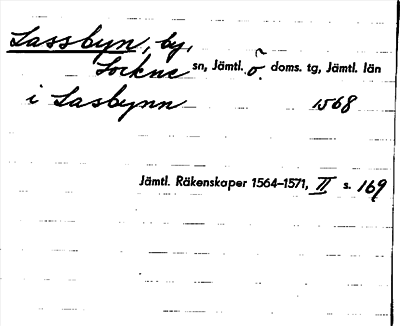 Lassbyn, by,
Lockne sn, Jämtl. ö. doms. tg, Jämtl. län
i Lasbynn 1568
Jämtl. Räkenskaper 1564–1571, II s. 169